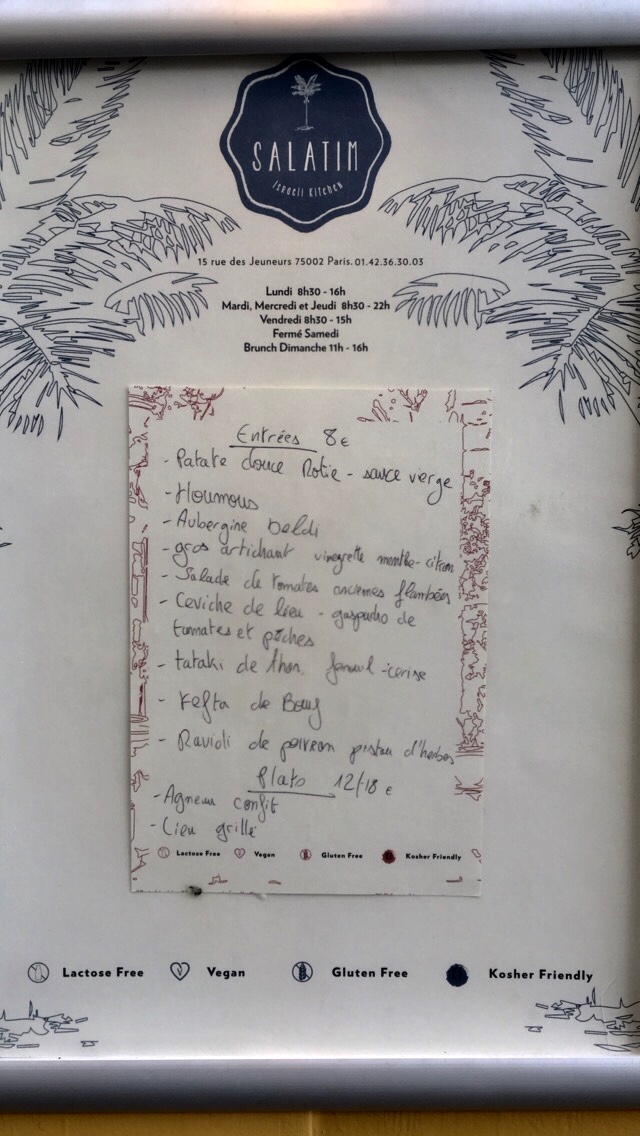 SALATIM
Israeli Kitchen
15 rue des Jeuneurs 75002 Paris. 01.42.36.30.03
Lundi 8h30 - 16h
Mardi, Mercredi et Jeudi 8h30 - 22h
Vendredi 8h30 - 15h
Fermé Samedi
Brunch Dimanche 11h - 16h
Entrées 8€
- Patate douce Rotie - sauce vierge
- Houmous
- Aubergine beldi
- gros artichaut vinegrette menthe-citron
- Salade de tomates anciennes flambées
- Ceviche de lieu - gaspacho de
tomates et pêches
- tataki de thon. fenouil - cerise
- Kefta de Bœuf
- Ravioli de poivron pistou d'herbes
Plats 12/18 €
- Agneau confit
- Lieu grillé
Lactose Free Vegan Gluten Free Kosher Friendly
Lactose Free Vegan Gluten Free Kosher Friendly